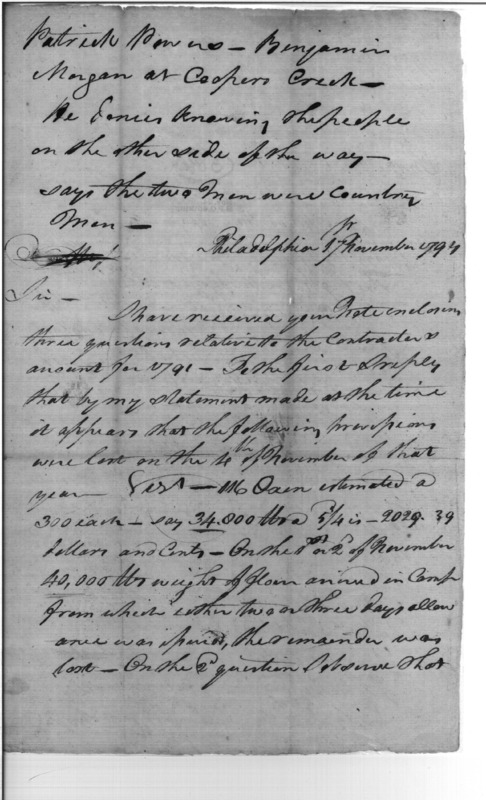 Patrick Powers - Benjamin
Morgan at Coopers Creek -
He denies knowing the people
on the other side of the way -
says the two Men were Country
Men -
Philadelphia 17 November 1794
Sir -
I have received your Note enclosing
three questions relative to the Contractors
amount for 1791 - To the first I reply
that by my statement made at the time
it appears that the following provisions
were lost on the 4th of November of that
year - First - 116 Oxen estimated a
300 each - say 34.800 lbs a is - 2029. 39
dollars and Cents - On the 1st or 2d of November
40,000 lbs weight of flour arrived in Camp
from which either two or three days allow
ance was issued, the remainder was
lost - On the 2d question I observe that